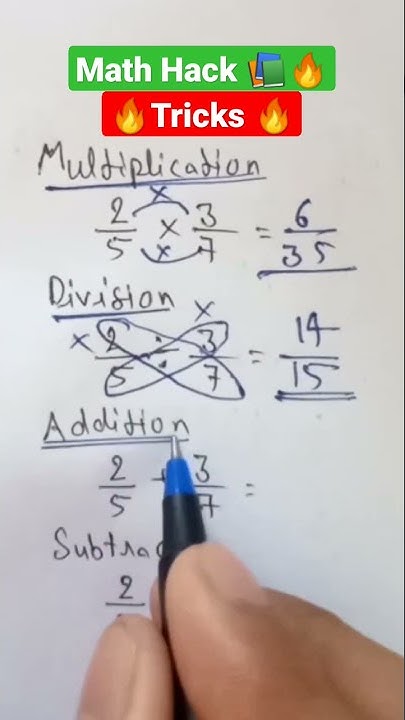 Math Hack 📚🔥
🔥Tricks 🔥
Multiplication
x
2/5 x 3/7 = 6/35
x
Division
x
x 2/5 ÷ 3/7 = 14/15
Addition
2/5 + 3/7 =
2